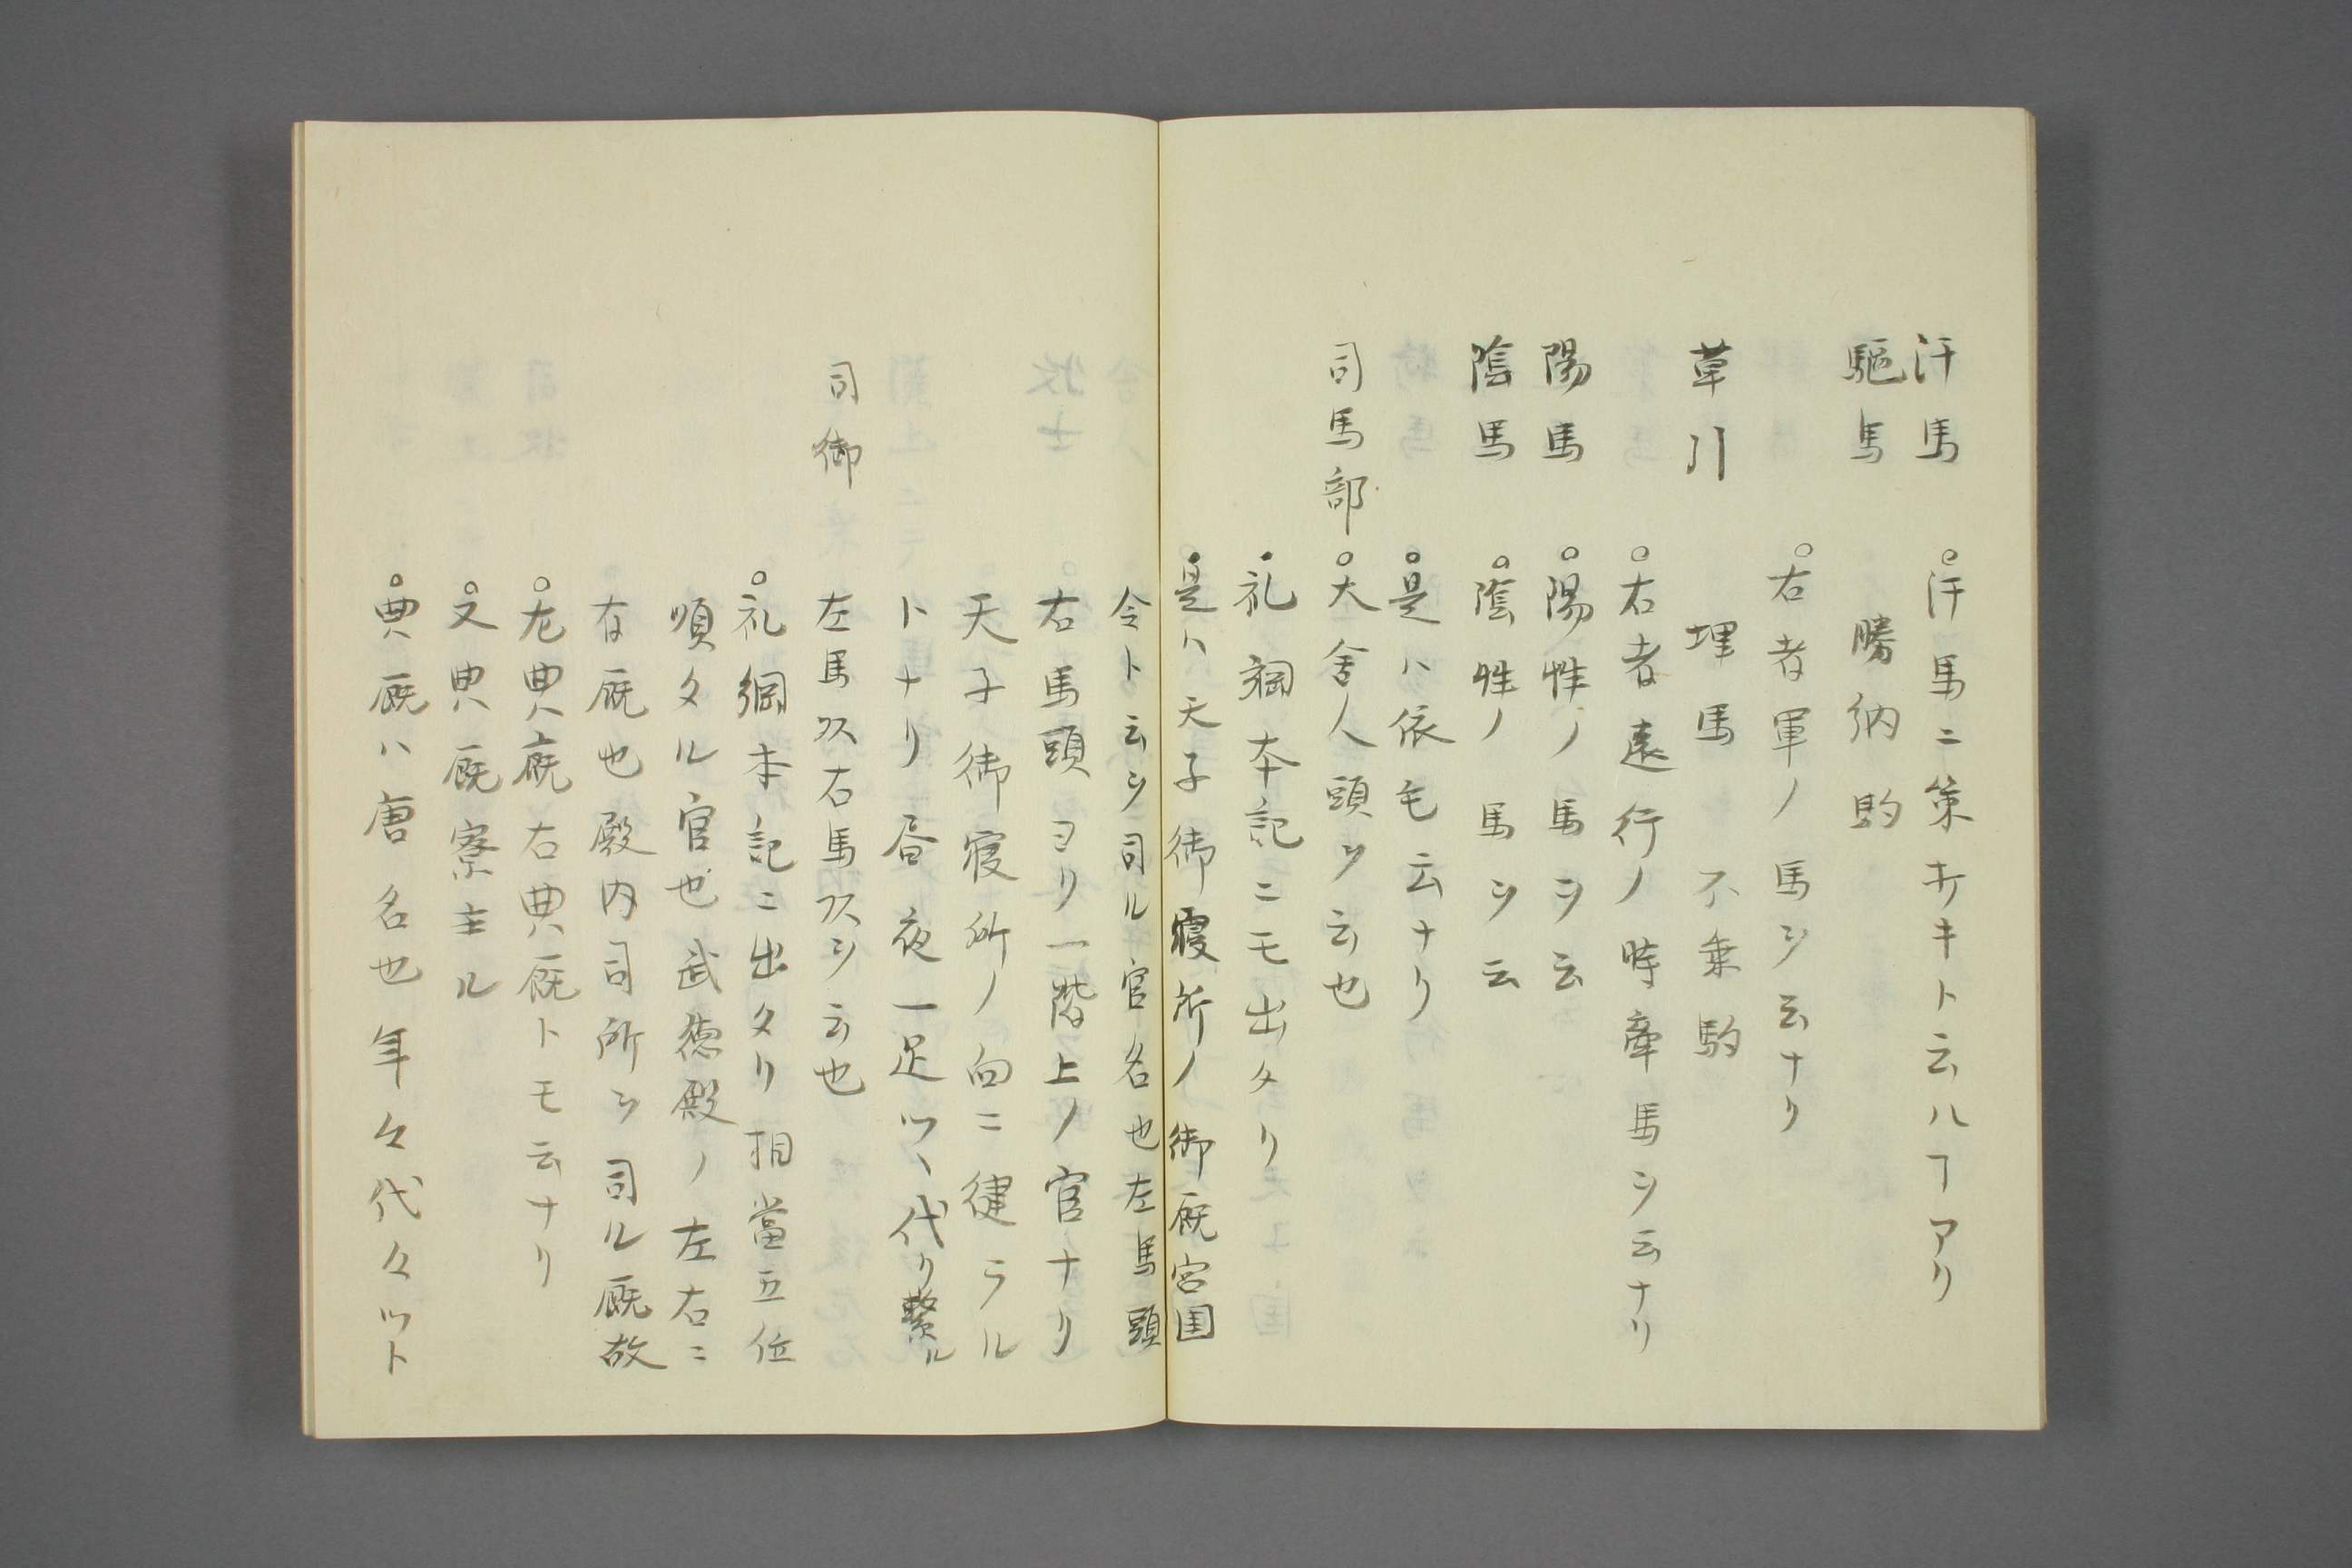 汗馬　○汗馬ニ策オキト云ハヿアリ
驅馬　勝納駒
○右者軍ノ馬ヲ云ナリ
草引　埋馬　不乗駒
○右者遠行ノ時牽馬ヲ云ナリ
陽馬　○陽性ノ馬ヲ云
陰馬　○陰性ノ馬ヲ云
○是ハ依毛云ナリ
司馬部　○大舎人頭ヲ云也
○礼綱本記ニモ出タリ
○是ハ天子御寝所ノ御厩宮国
令ト云ヲ司ル官名也左馬頭
右馬頭ヨリ一階上ノ官ナリ
天子御寝所ノ向ニ健ラル
トナリ昼夜一足ツヽ代り繋ル
司御　左馬次右馬次ヲ云也
○礼綱本記ニ出タリ相當五位
順タル官也武徳殿ノ左右ニ
有厩也殿内司所ヲ司ル厩故
○左典厩右典厩トモ云ナリ
○又典厩寮主ル
○典厩ハ唐名也年々代々ット